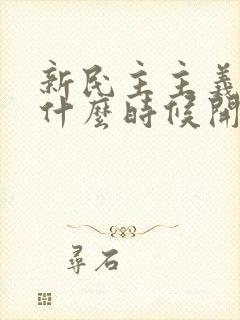 新民主主義
什麼時候開
尋石